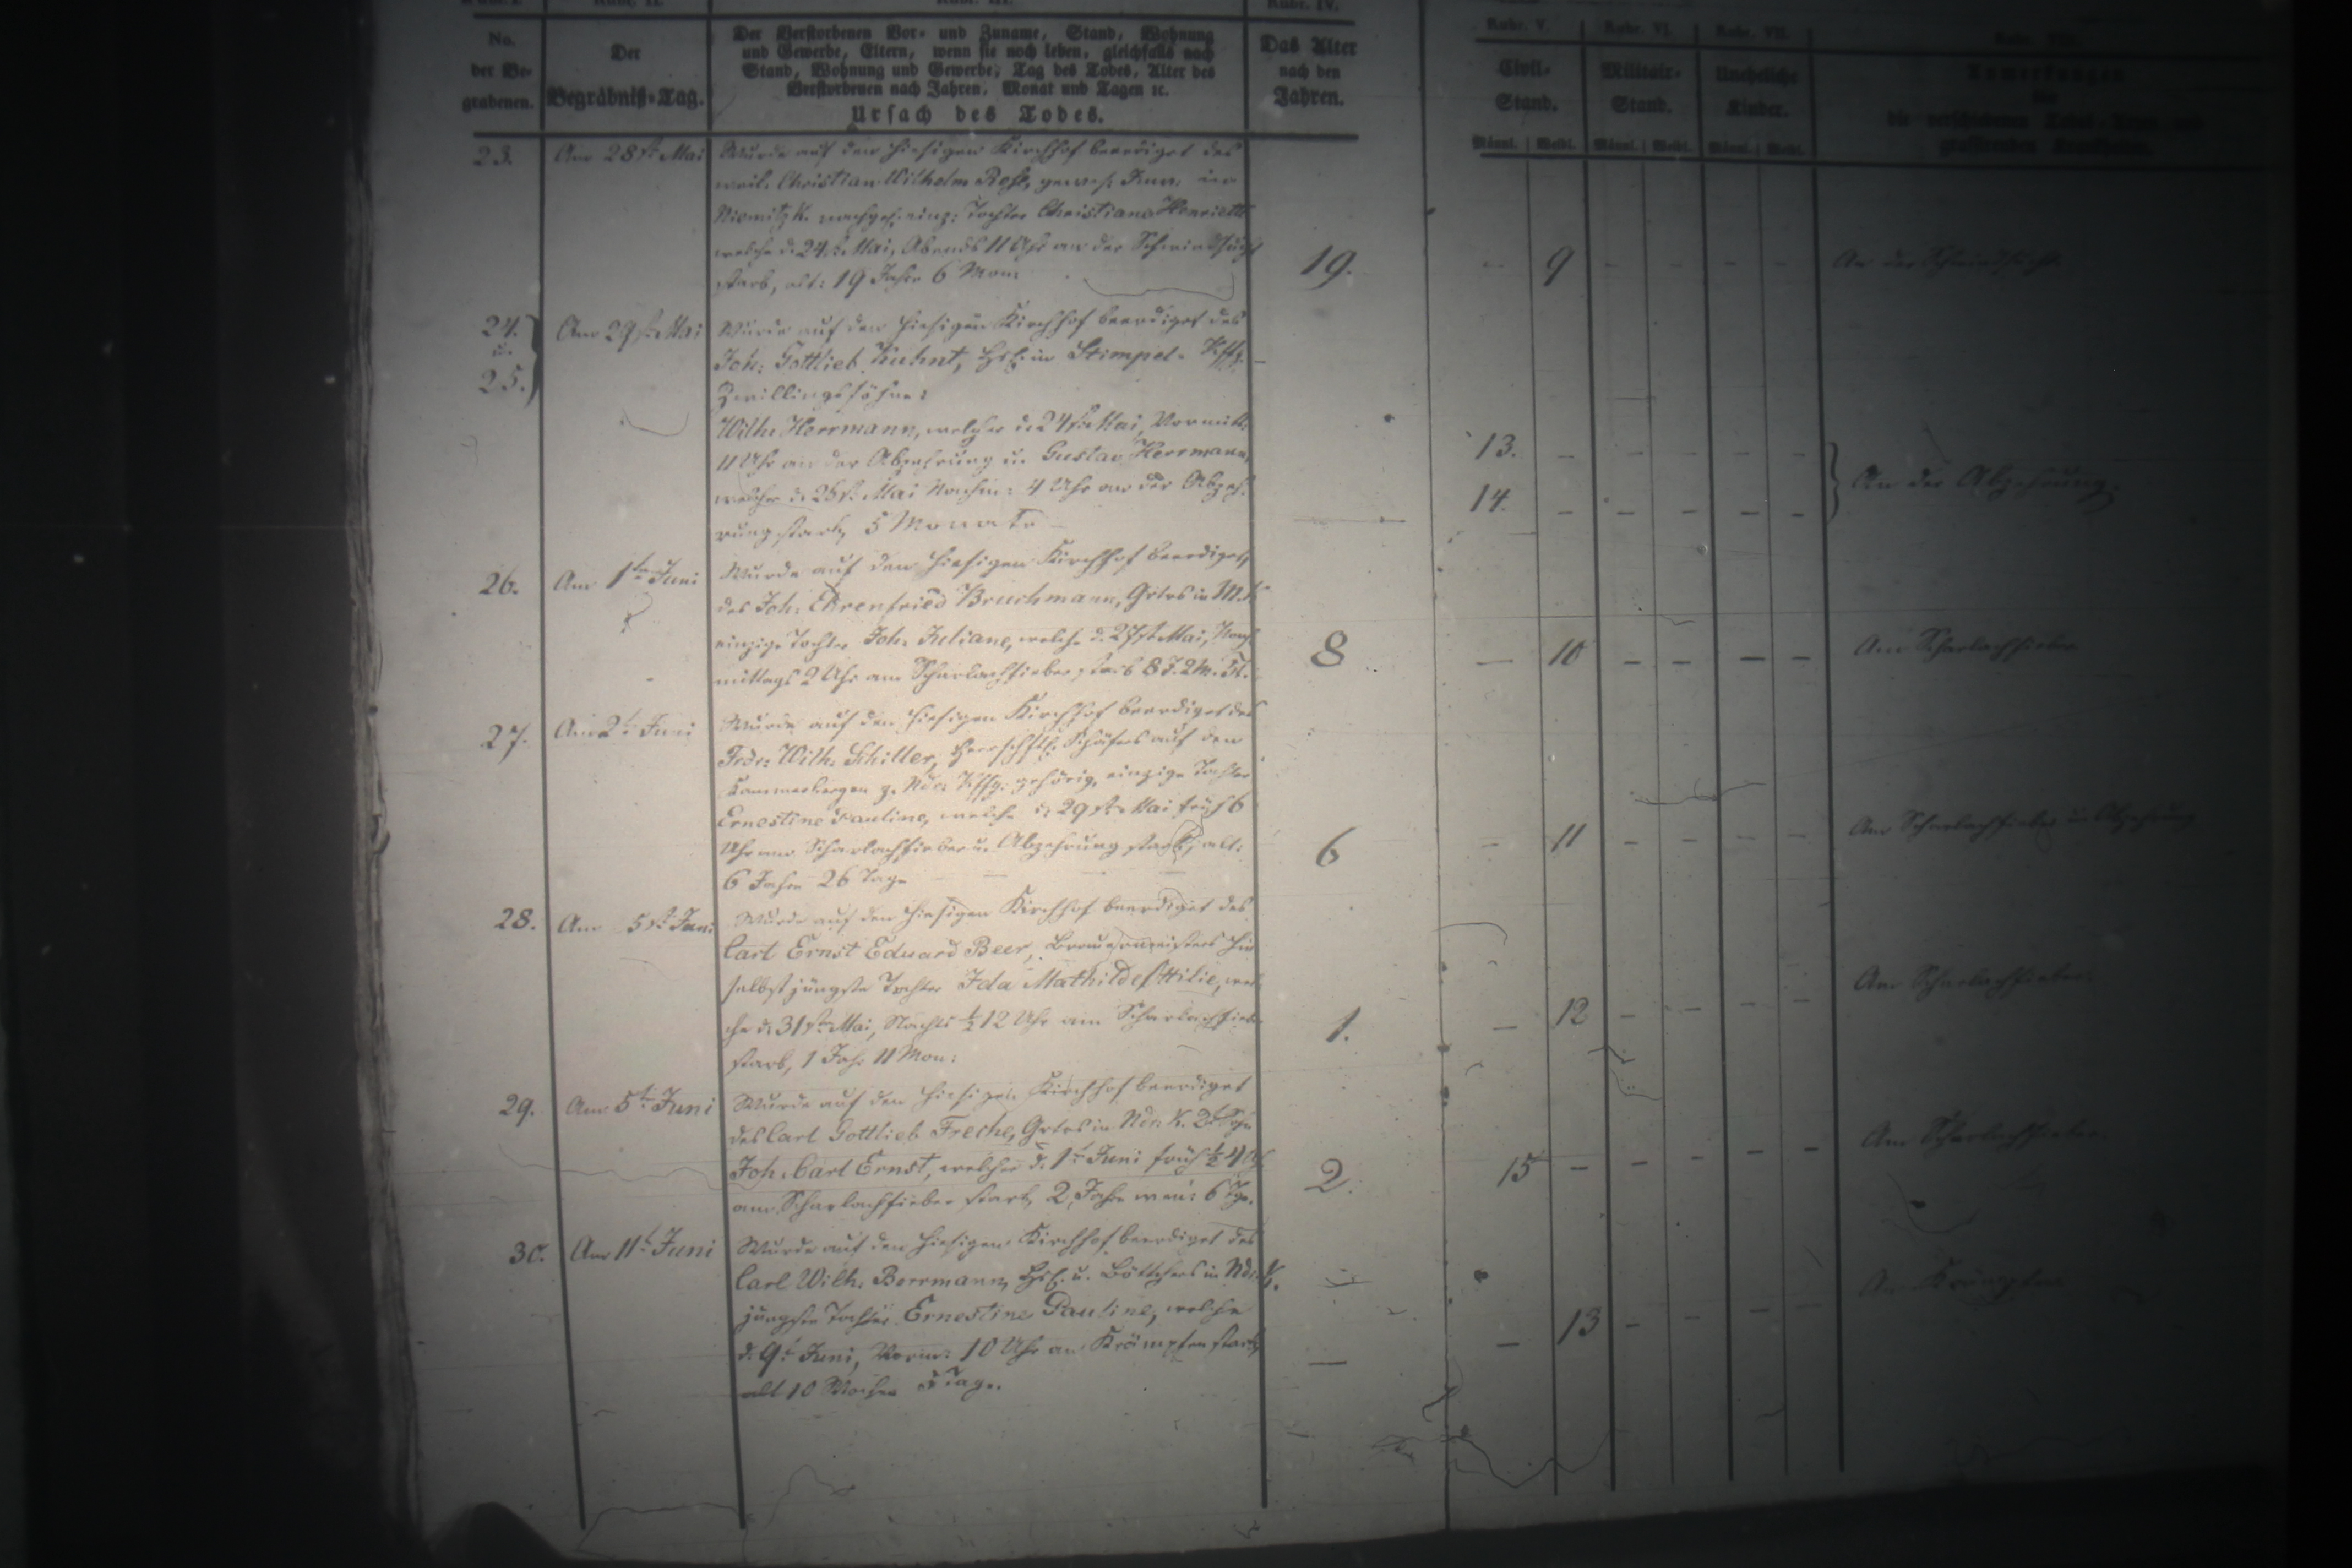 Rubr. IV.
Rubr. V. Rubr. VI. Rubr. VII.
No. der Be- grabenen.
Der Begräbniß-Tag.
Der Verstorbenen Vor- und Zuname, Stand, Wohnung
und Gewerbe, Eltern, wenn sie noch leben, gleichfalls nach
Stand, Wohnung und Gewerbe, Tag des Todes, Alter des
Verstorbenen nach Jahren, Monat und Tagen ꝛc.
Ursach des Todes.
Das Alter nach den Jahren.
Civil- Stand.
Militair- Stand.
Uneheliche Kinder.
Anmerkungen
Männl. Weibl. Männl. Weibl. Männl. Weibl.
23. Am 28st. Mai Wurde auf den hiesigen Kirchhof beerdiget des
weil. Christian Wilhelm gewes.
nachgel. einz: Tochter Christiane Henriette
welche d. 24st. Mai, Abends 11 Uhr an der Schwindsucht
starb, alt: 19 Jahre 6 Mon: 19. - 9 - - - - An der Schwindsucht
24. u. 25. Am 29st. Mai Wurde auf den hiesigen Kirchhof beerdiget des
Joh: Gottlieb Kuhnt, in Stimpel-
Zwillingssöhne:
Wilh: Herrmann, welcher d. 24st. Mai, Vormitt:
11 Uhr an der Abzehrung u. Gustav Herrmann, 13. - - - - -
welcher d. 26st. Mai Nachm: 4 Uhr an der Abzeh- 14. - - - - - An der Abzehrung.
rung starb, 5 Monate
26. Am 1ten Juni Wurde auf den hiesigen Kirchhof beerdiget,
des Joh: Ehrenfried Bruchmann, Grtrs in
einzige Tochter Joh: Juliane, welche d. 27st. Mai, Nach-
mittags 2 Uhr am Scharlachfieber starb 8 J. 2 M. 8 - 10 - - - - Am Scharlachfieber
27. Am 2t. Juni Wurde auf den hiesigen Kirchhof beerdiget des
Wilh: Schiller, Herrschftl: Schäfers auf den
gehörig, einzige Tochter
Ernestine Pauline, welche d. 29st. Mai früh 6
Uhr am Scharlachfieber u. Abzehrung starb, alt: 6 - 11 - - - - Am Scharlachfieber u. Abzehrung
6 Jahre 26 Tage
28. Am 5st. Juni Wurde auf den hiesigen Kirchhof beerdiget des
Carl Ernst Eduard Beer, Brauermeisters hie-
selbst jüngste Tochter Ida Mathilde Ottilie, wel-
che d. 31st. Mai, Nachts ½ 12 Uhr am Scharlachfieber 1. - 12 - - - - Am Scharlachfieber.
starb, 1 Jahr 11 Mon:
29. Am 5t. Juni Wurde auf den hiesigen Kirchhof beerdiget
des Carl Gottlieb Freche, Grtrs in Ndr. K. 2t. Sohn
Joh: Carl Ernst, welcher d. 1t. Juni früh ½ 4 Uhr
am Scharlachfieber starb, 2 Jahre wen: 6 Tge. 2. 15 - - - - - Am Scharlachfieber.
30. Am 11t. Juni Wurde auf den hiesigen Kirchhof beerdiget des
Carl Wilh. Borrmann, u. Böttchers in Ndr. K.
jüngste Tochter Ernestine Pauline, welche
d. 9t. Juni, Vorm: 10 Uhr an Krämpfen starb, - - 13 - - - - An Krämpfen
alt 10 Wochen Tage.